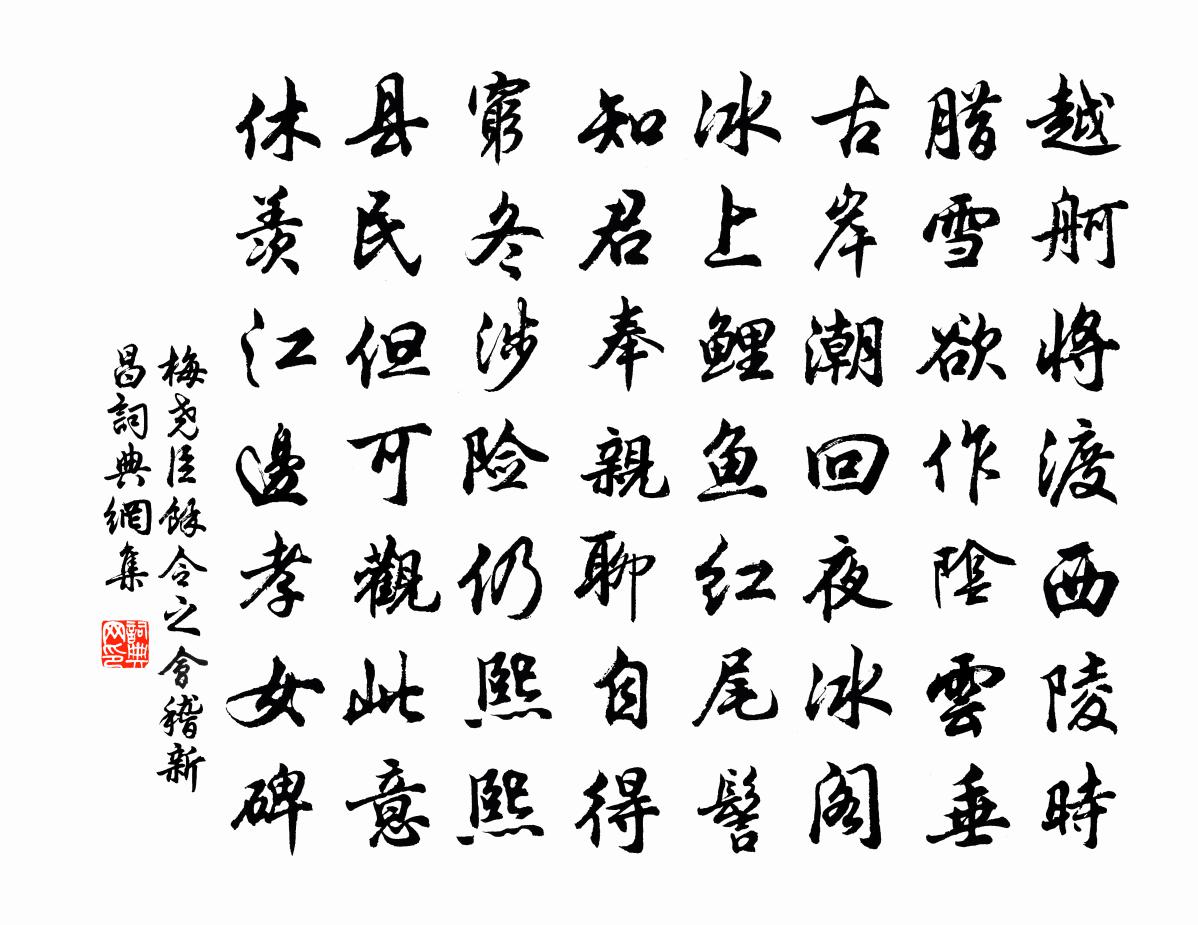 越舸將渡西陵時
腊雪欲作陰雲垂
古岸潮回夜冰阁
冰上鲤鱼红尾髻
知君奉親聊自得
窮冬涉险仍熙熙
县民但可觀此意
休羨江邊孝女碑
梅尧臣餘令之會稽新
昌詞典網集
詞典网印